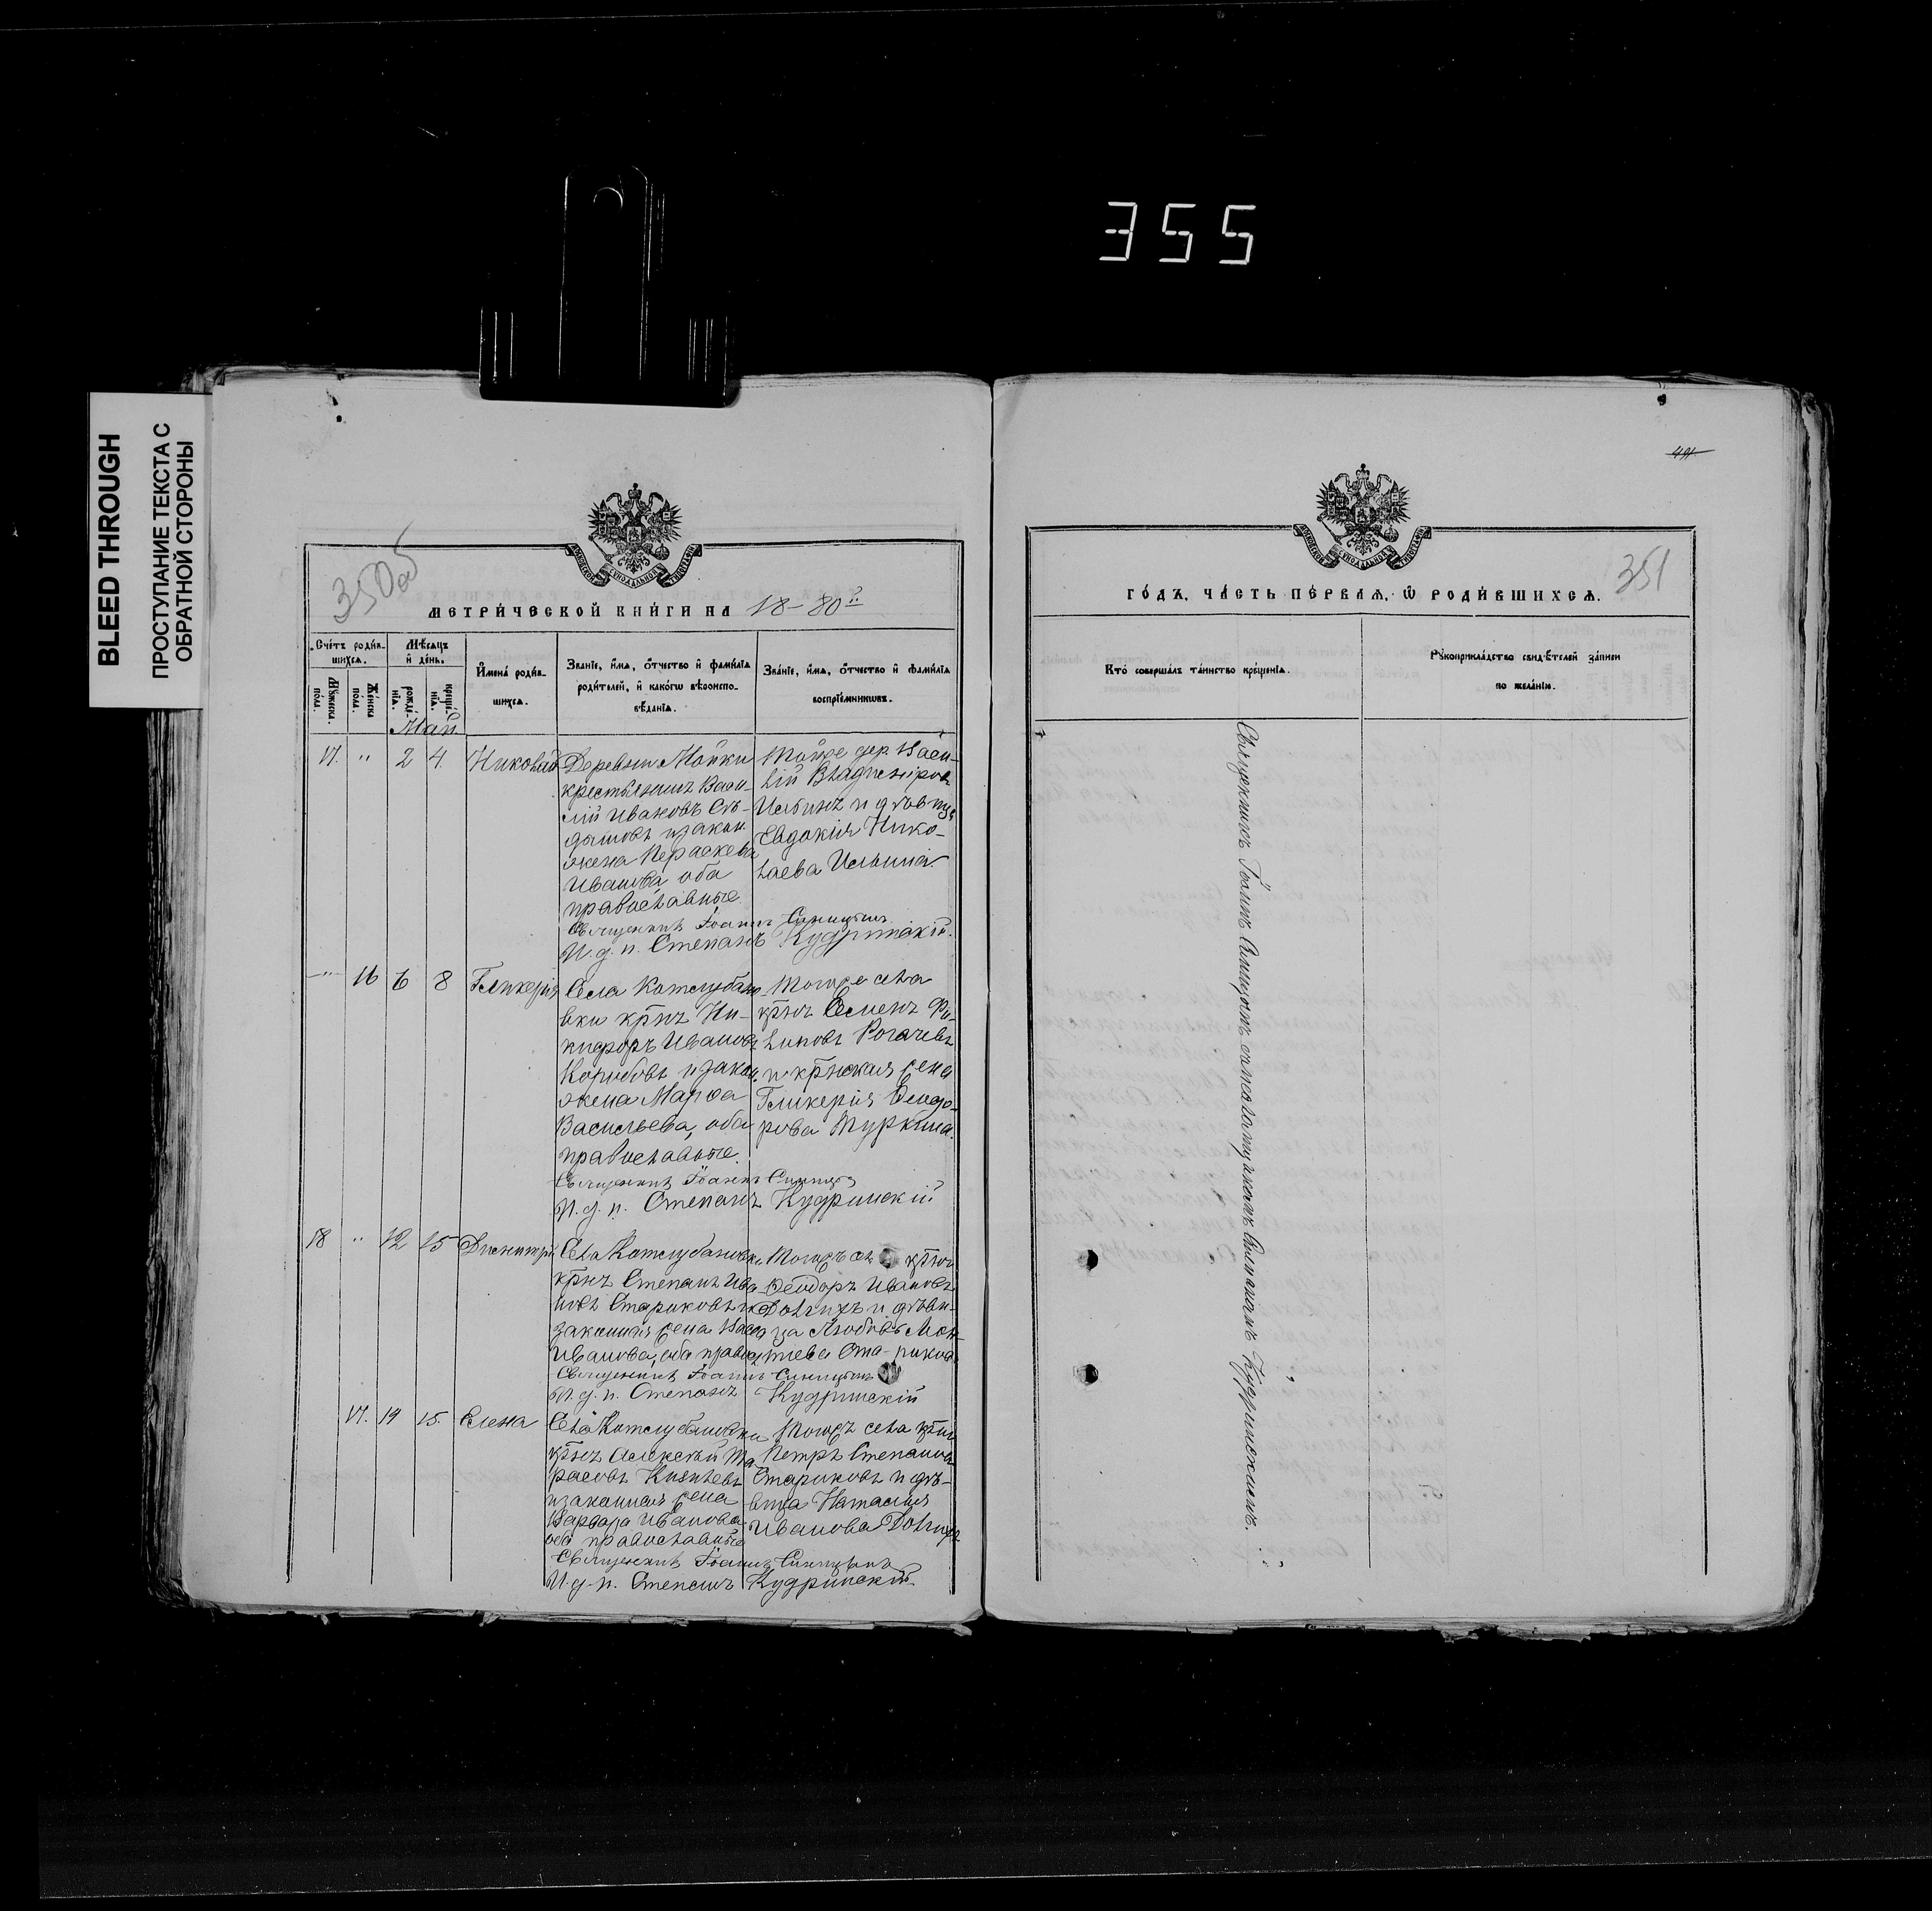 355
BLEED THROUGH
ПРОСТУПАНИЕ ТЕКСТА С
ОБРАТНОЙ СТОРОНЫ
350об
МЕТРИЧЕСКОЙ КНИГИ НА 18-80й
Счетъ родив-
шихся.
Мужеска пол.
Женска пол.
Мѣсяцъ
и день.
рожде-
нія.
креще-
нія.
Имена родив-
шихся.
Званіе, имя, отчество и фамилія
родителей, и какого вѣроиспо-
вѣданія.
Званіе, имя, отчество и фамилія
воспріемниковъ.
Май
17. " 2 4
Деревни Мойки
крестьянинъ Васи-
лій Ивановъ
и закон.
жена Параскева
Иванова, оба
православные.
Тойже дер. Васи-
лій Владиміровъ
и дѣвица
Евдокія Нико-
лаева Ильина
Священникъ Іоаннъ Синицынъ
И. д. п. Степанъ Кудринскій.
" 16 6 8 Гликерія
Села Котлубано-
вки крѣнъ Ни-
кифоръ Ивановъ
и закон.
жена Марѳа
Васильева, оба
православные.
Тогоже села
крѣнъ Семенъ Фи-
липовъ Рогачевъ
и крѣнская жена
Гликерія Ѳеодо-
рова Туркина.
Священникъ Іоаннъ Синицынъ
И. д. п. Степанъ Кудринскій
18 " 12 15 Димитрій
Села Котлубановки
крѣнъ Степанъ Ива-
новъ Стариковъ и
законная жена
Иванова, оба правос
Тогожъ
Ѳеодоръ Ивановъ
Долгихъ и дѣви-
ца Любовь
Священникъ Іоаннъ Синицынъ
И. д. п. Степанъ Кудринскій
17. 14 15. Елена
Села Котлубановки
крѣнъ Алексѣй Та-
расовъ Князевъ
и законная жена
Варвара Иванова
оба православные
Тогожъ села крѣнъ
Петръ Степановъ
Стариковъ и дѣ-
вица Наталія
Иванова Долгихъ
Священникъ Іоаннъ Синицынъ
И. д. п. Степанъ Кудринскій
351
ГОДЪ, ЧАСТЬ ПЕРВАЯ, Ѡ РОДИВШИХСЯ.
Кто совершалъ таинство крещенія.
Рукоприкладство свидѣтелей записи
по желанію.
Священникъ Іоаннъ Синицынъ съ псаломщикомъ Степаномъ Кудринскимъ.